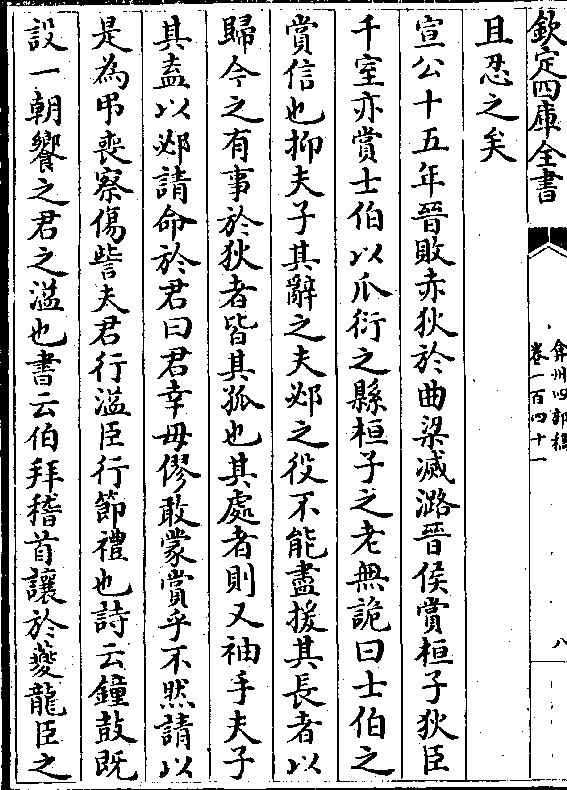 欽定四庫全書
弇州四部稿
卷一百四十一
八
且忍之矣
宣公十五年晉敗赤狄於曲梁滅潞晉侯賞桓子狄臣
千室亦賞士伯以爪衍之縣桓子之老無詭曰士伯之
賞信也抑夫子其辭之夫邲之役不能盡援其長者以
歸今之有事於狄者皆其孤也其處者則又袖手夫子
其盍以邲請命於君曰君幸毋僇敢蒙賞乎不然請以
是為弔喪察傷訾夫君行濫臣行節禮也詩云鐘鼓既
設一朝饗之君之濫也書云伯拜稽首讓於夔龍臣之